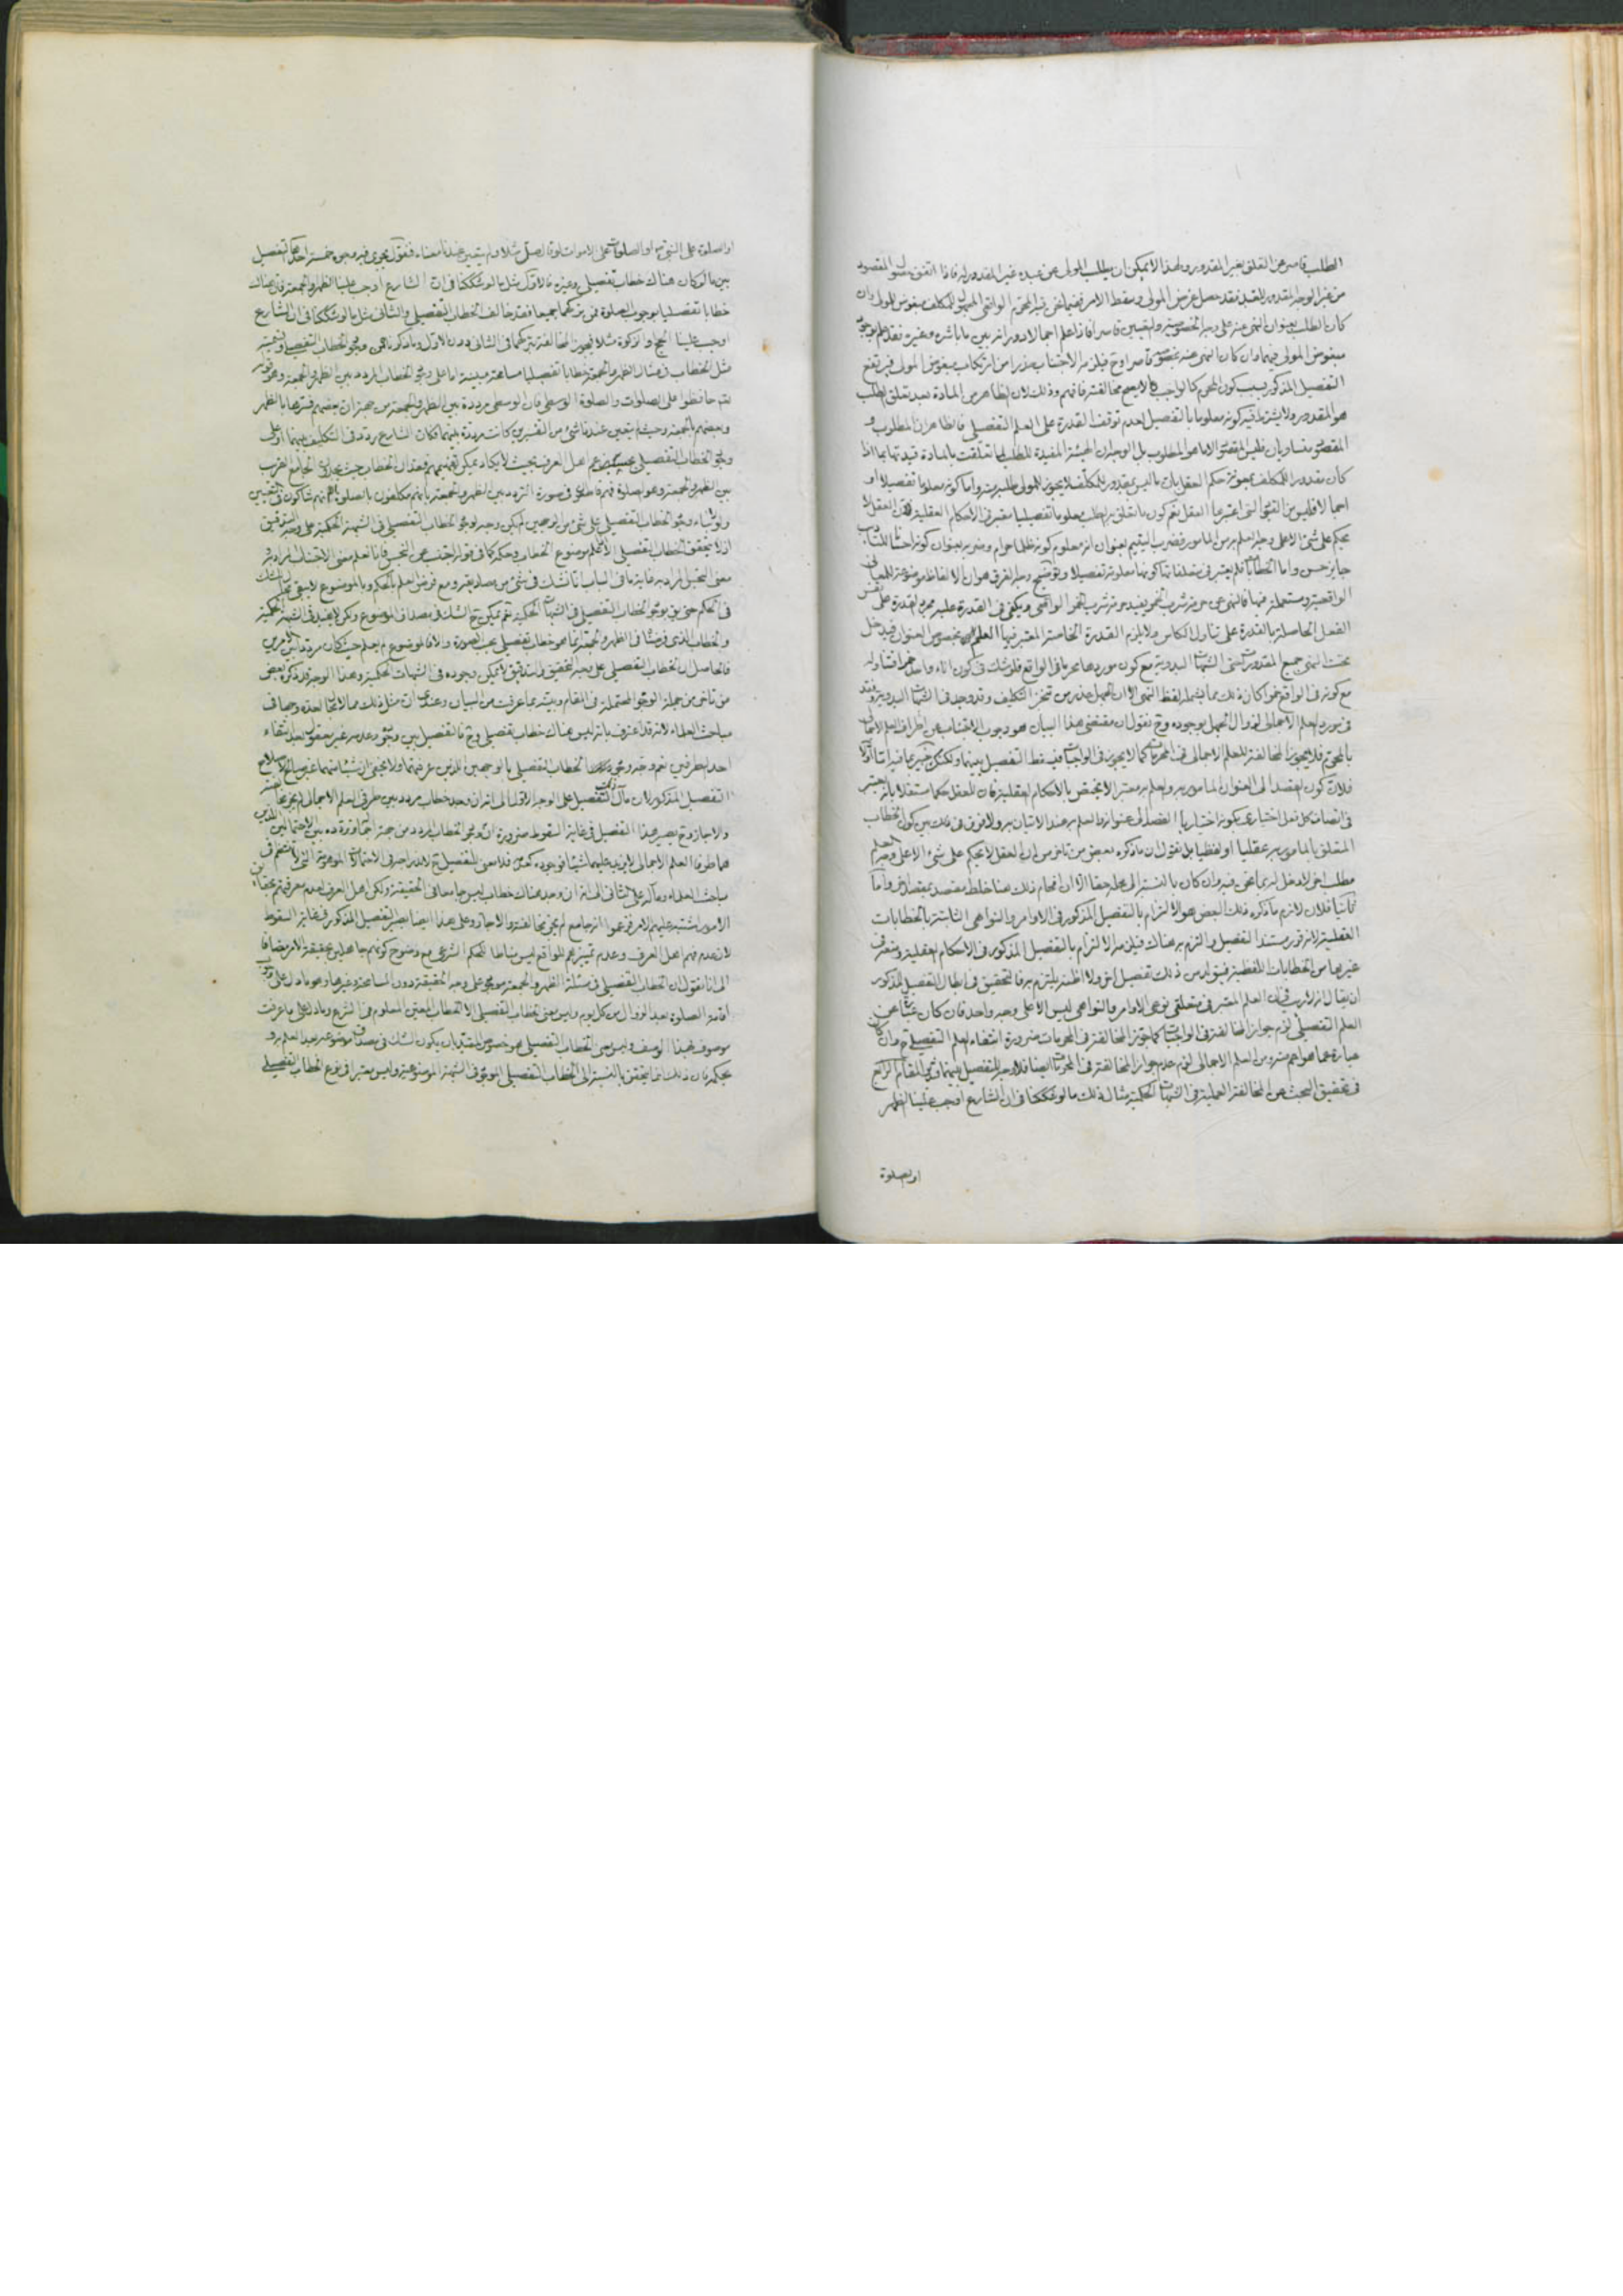 الطلب قاصر عن التعلق بغير المقدور ولهذا لا يمكن ان يطلب المولى من عبده غير المقدور له فاذا اتفق المقصود
من غير الوجه المقدور للعبد فقد حصل غرض المولى وسقط الامر فيما نحن فيه المحرم الواقعي المجهول للمكلف مبغوض للمولى وان
كان الطلب بعنوان النهي عنه على وجه الخصوصية والتعيين قاصرا فاذا علم اجمالا دورانه بين ما باشره وغيره فقد علم بوجود
مبغوض المولى فيهما وان كان النهي عنه بخصوصه قاصرا وح فيلزمه الاجتناب حذرا من ارتكاب مبغوض المولى فيرتفع
التفصيل المذكور بسبب كون المحرم كالواجب لا يصح مخالفته فافهم وذلك لان الظاهر من المادة بعد تعلق الطلب
هو المقدور ولا يشترط فيه كونه معلوما بالتفصيل لعدم توقف القدرة على العلم التفصيلي فالظاهر ان المطلوب و
المقصود متساويان فليس المقصود الا ما هو المطلوب بل الوجه ان الهيئة المفيدة للطلب انما تعلقت بالمادة قيدتها بما اذا
كان مقدورا للمكلف بمعونة حكم العقل بان ما ليس بمقدور للمكلف لا يجوز للمولى طلبه واما كونه معلوما تفصيلا او
اجمالا فليس من القيود التي اعتبرها العقل نعم كون ما تعلق به الطلب معلوما تفصيليا معتبر في الاحكام العقلية فان العقل لا
يحكم على شيء الا على وجه العلم به من المأمور فضرب اليتيم بعنوان انه معلوم كونه ظلما حرام وضربه بعنوان كونه احسانا للتاديب
جايز حسن واما الخطابات فلم يعتبر في متعلقاتها كونها معلومة تفصيلا وتوضيح وجه الفرق هو ان الالفاظ موضوعة للمعاني
الواقعية ومستعملة فيها فالنهي عن حرمة شرب الخمر يفيد حرمة شرب الخمر الواقعي ويكفي في القدرة عليه مجرد القدرة على نفس
الفعل الحاصلة بالقدرة على تناول الكاس ولا يلزم القدرة الخاصة المعتبر فيها العلم بخصوص العنوان فيدخل
تحت النهي جميع المقدورات حتى الشبهات البدوية مع كون موردها محرما في الواقع فلو شك في كون اناء واحد خمرا فتناوله
مع كونه في الواقع خمرا كان ذلك مما يشمله لفظ النهي الا ان الجهل عذر من تنجز التكليف وقد وجد في الشبهات البدوية وفقد
في مورد العلم الاجمالي لزوال الجهل بوجوده وح نقول ان مقتضى هذا البيان هو وجوب الاجتناب عن اطراف العلم الاجمالي
بالمحرم فلا يجوز المخالفة للعلم الاجمالي في المحرمات كما لا يجوز في الواجبات فيسقط التفصيل بينهما ولكنك خبير بما فيه اما اولا
فلان كون القصد الى العنوان المامور به والعلم به معتبرا لا يختص بالاحكام العقلية فان للعقل حكما مستقلا بانه يعتبر
في اتصاف كل فعل اختياري بكونه اختياريا القصد الى عنوانه والعلم به عند الاتيان به ولا فرق في ذلك بين كون الخطاب
المتعلق بالمامور به عقليا او لفظيا بل نقول ان ما ذكره بعض من تاخر من ان العقل لا يحكم على شيء الا على وجه العلم
مطلب اخر لا دخل له بما نحن فيه وان كان بالنسبة الى محله حقا الا ان اقحام ذلك هنا خلط مقصد بمقصد اخر واما
ثانيا فلان لازم ما ذكره ذلك البعض هو الالتزام بالتفصيل المذكور في الاوامر والنواهي الثابتة بالخطابات
العقلية لانه قرر مستند التفصيل والتزم به هناك فيلزمه الالتزام بالتفصيل المذكور في الاحكام العقلية ومنعه في
غيرها من الخطابات اللفظية فيتولد من ذلك تفصيل اخر ولا اظنه يلتزم به فالتحقيق في ابطال التفصيل المذكور
ان يقال انه لا ريب في ان العلم المعتبر في متعلقي نوعي الاوامر والنواهي ليس الا على وجه واحد فان كان عبارة عن
العلم التفصيلي لزم جواز المخالفة في الواجبات كما يجوز المخالفة في المحرمات ضرورة انتفاء العلم التفصيلي ح وان كان
عبارة عما هو اعم منه ومن العلم الاجمالي لزم عدم جواز المخالفة في المحرمات ايضا فلا وجه للتفصيل بينهما المقام الرابع
في تحقيق البحث عن المخالفة العملية في الشبهات الحكمية مثال ذلك ما لو شككنا في ان الشارع اوجب علينا الظهر
او الصلوة
او الصلوة على النبي او الصلوة على الاموات لو قال صل مثلا ولم يتعين عندنا معناه فنقول يجري فيه وجوه خمسة احدها التفصيل
بين ما لو كان هناك خطاب تفصيلي وغيره فالاول مثل ما لو شككنا في ان الشارع اوجب علينا الظهر او الجمعة فان هناك
خطابا تفصيليا بوجوب الصلوة فمن تركهما جميعا فقد خالف الخطاب التفصيلي والثاني مثل ما لو شككنا في ان الشارع
اوجب علينا الحج او الزكوة مثلا فيجوز المخالفة بتركهما في الثاني دون الاول وما ذكرناه من وجود الخطاب التفصيلي وتسمية
مثل الخطاب في مثال الظهر والجمعة خطابا تفصيليا مسامحة مبنية اما على وجود الخطاب المردد بين الظهر والجمعة وهو قوله
تعم حافظوا على الصلوات والصلوة الوسطى فان الوسطى مرددة بين الظهر والجمعة من جهة ان بعضهم فسرها بالظهر
وبعضهم بالجمعة وحيث لم يتعين عندنا شيء من التفسيرين كانت مرددة بينهما فكان الشارع ردد في التكليف بينهما او على
وجود الخطاب التفصيلي بحسب زعم اهل العرف بحيث لا يكاد يمكن تفهيمهم فقدان الخطاب حيث يجدون الجامع القريب
بين الظهر والجمعة وهو الصلوة فهم قاطعون في صورة التردد بين الظهر والجمعة بانهم مكلفون بالصلوة وانهم شاكون في التعيين
ولو بناء وجود الخطاب التفصيلي على شيء من الوجهين لم يكن وجه لوجود الخطاب التفصيلي في الشبهة الحكمية على وجه التدقيق
اذ لا يتحقق الخطاب التفصيلي الا بعلم موضوع الخطاب وحكمه كما في قوله اجتنب عن النجس فانا نعلم معنى الاجتناب المراد به
معنى النجس المراد به غاية ما في الباب انا نشك في شيء من مصاديقه ومع فرض العلم بالحكم وبالموضوع لا يبقى مجال للشك
في الحكم حتى يق بوجود الخطاب التفصيلي في الشبهات الحكمية نعم يمكن ح الشك في مصداق الموضوع ولكن لا يجدي في الشبهة الحكمية
والخطاب الذي فرضنا في الظهر والجمعة انما هو خطاب تفصيلي بحسب الصورة والا فالموضوع لم يعلم حيث كان مرددا بين الامرين
فالحاصل ان الخطاب التفصيلي على وجه التحقيق والتدقيق لا يمكن وجوده في الشبهات الحكمية وهذا الوجه قد ذكره بعض
من تاخر من جملة الوجوه المحتملة في المقام وبينه بما عرفت من البيان وعندي ان مثل ذلك مما لا مجال لعده وجها في
مباحث العلماء لانه قد اعترف بانه ليس هناك خطاب تفصيلي وح فالتفصيل بين وجوده وعدمه غير معقول بعد انتفاء
احد الطرفين نعم وجه وجود الخطاب التفصيلي بالوجهين الذين عرفتهما ولا يخفى ان شيئا منهما غير صالح لاصلاح
التفصيل المذكور لان مآل التفصيل على الوجه الاول الى انه ان وجد خطاب مردد بين طرفي العلم الاجمالي لم يجز المخالفة
والا جاز وح يصير هذا التفصيل في غاية السقوط ضرورة ان وجود الخطاب المردد من جهة انما تردده بين الاحتمالين الذين
هما طرفا العلم الاجمالي لا يزيد عليهما شيئا فوجوده كعدمه فلا معنى للتفصيل ح لاندراجه في الاحتمالات الموهومة التي لا تنضم في
مباحث العلماء ومآله على الثاني الى انه ان وجد هناك خطاب ليس جامعا في الحقيقة ولكن اهل العرف لعدم معرفتهم بحقايق
الامور اشتبه عليهم الامر فزعموا انه جامع لم يجز المخالفة والا جاز وعلى هذا ايضا يصير التفصيل المذكور في غاية السقوط
لان عدم فهم اهل العرف وعدم تمييزهم للواقع ليس مناطا للحكم الشرعي مع وضوح كونهم جاهلين بحقيقة الامر مضافا
الى انا نقول ان الخطاب التفصيلي في مسئلة الظهر والجمعة موجود على وجه الحقيقة دون المسامحة وغيرها وهو ما دل على وجوب
اقامة الصلوة بعد الزوال من كل يوم وليس معنى الخطاب التفصيلي الا الخطاب المعين المعلوم من الشرع وما دل على ما عرفت
موصوف بهذا الوصف وليس معنى الخطاب التفصيلي هو خصوص المقيد بان يكون الشك في مصداق موضوعه بعد العلم به و
بحكمه فان ذلك انما يتحقق بالنسبة الى الخطاب التفصيلي الموجود في الشبهة الموضوعية وليس معتبرا في نوع الخطاب التفصيلي